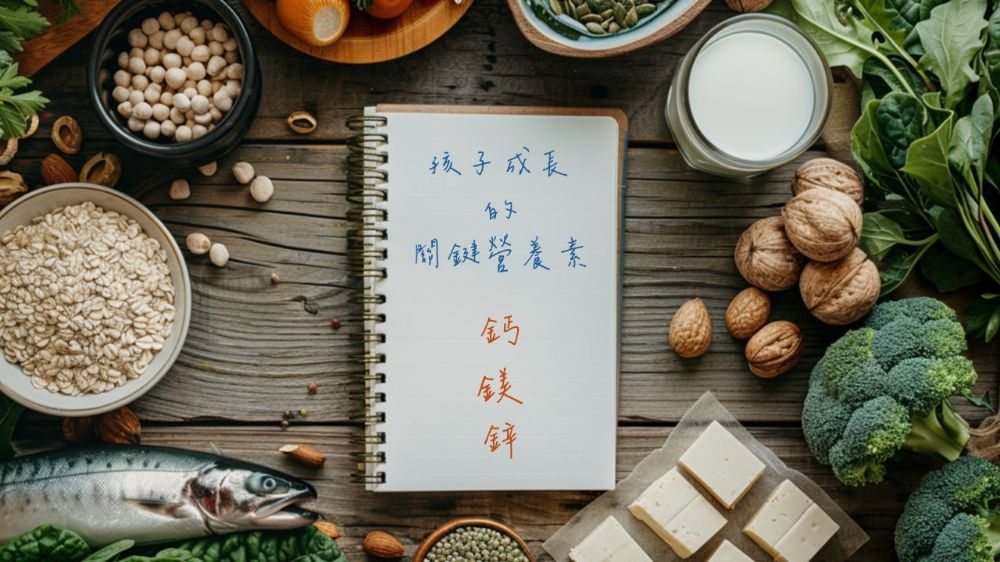 孩子成長
的
關鍵營養素
鈣
鎂
鋅